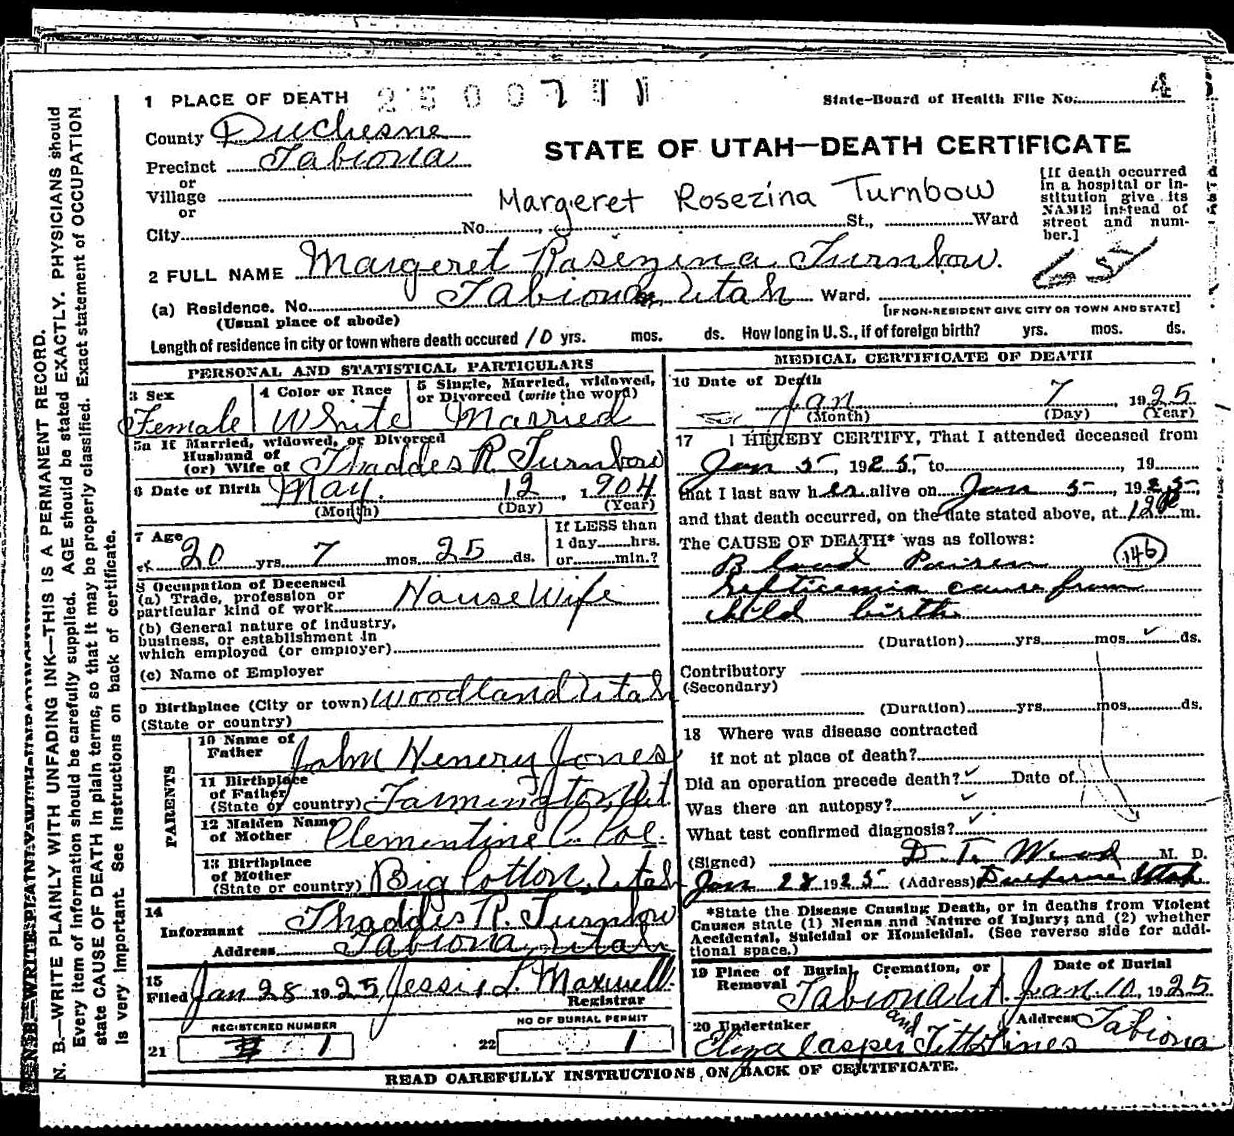 1 PLACE OF DEATH
State-Board of Health File No. 4
County Duchesne
Precinct Tabiona
STATE OF UTAH—DEATH CERTIFICATE
or
Village
or
Margeret Rosezina Turnbow
[If death occurred in a hospital or in-
stitution give its
NAME instead of
street and num-
ber.]
City No. , St., Ward
2 FULL NAME Margeret Rosezina Turnbow.
(a) Residence. No. Tabiona, Utah Ward.
(Usual place of abode)
[IF NON-RESIDENT GIVE CITY OR TOWN AND STATE]
Length of residence in city or town where death occured 10 yrs. mos. ds. How long in U.S., if of foreign birth? yrs. mos. ds.
PERSONAL AND STATISTICAL PARTICULARS
3 Sex
Female
4 Color or Race
White
5 Single, Married, widowed,
or Divorced (write the word)
Married
5a If Married, widowed, or Divorced
Husband of
(or) Wife of Thaddes R. Turnbow
6 Date of Birth May. 12, 1904
(Month) (Day) (Year)
7 Age
20 yrs. 7 mos. 25 ds.
If LESS than
1 day hrs.
or min.?
8 Occupation of Deceased
(a) Trade, profession or
particular kind of work House Wife
(b) General nature of industry,
business, or establishment in
which employed (or employer)
(c) Name of Employer
9 Birthplace (City or town) Woodland Utah
(State or country)
PARENTS
10 Name of
Father John Henery Jones
11 Birthplace
of Father
(State or country) Farmington, Ut.
12 Maiden Name
of Mother Clementine C.
13 Birthplace
of Mother
(State or country) Big Cotton, Utah
14
Informant Thaddis R. Turnbow
Address Tabiona, Utah
15
Filed Jan 28 1925, Jessie L. Maxwell.
Registrar
21 REGISTERED NUMBER 1
22 NO OF BURIAL PERMIT 1
MEDICAL CERTIFICATE OF DEATH
16 Date of Death
Jan 7 1925
(Month) (Day) (Year)
17 I HEREBY CERTIFY, That I attended deceased from
Jan 5, 1925, to , 19
that I last saw her alive on Jan 5, 1925,
and that death occurred, on the date stated above, at m.
The CAUSE OF DEATH* was as follows: 146
Blood Poisen
septicemia cause from
child birth
(Duration) yrs. mos. ds.
Contributory
(Secondary)
(Duration) yrs. mos. ds.
18 Where was disease contracted
if not at place of death?
Did an operation precede death? Date of
Was there an autopsy?
What test confirmed diagnosis?
(Signed) D. T. Wood M. D.
Jan 28 1925 (Address) Duchesne Utah
*State the Disease Causing Death, or in deaths from Violent
Causes state (1) Means and Nature of Injury; and (2) whether
Accidental, Suicidal or Homicidal. (See reverse side for addi-
tional space.)
19 Place of Burial, Cremation, or
Removal Tabiona Ut.
Date of Burial
Jan. 10, 1925
20 Undertaker
Eliza Casper and
Address Tabiona
READ CAREFULLY INSTRUCTIONS ON BACK OF CERTIFICATE.
N. B.—WRITE PLAINLY WITH UNFADING INK—THIS IS A PERMANENT RECORD.
Every item of information should be carefully supplied. AGE should be stated EXACTLY. PHYSICIANS should
state CAUSE OF DEATH in plain terms, so that it may be properly classified. Exact statement of OCCUPATION
is very important. See instructions on back of certificate.